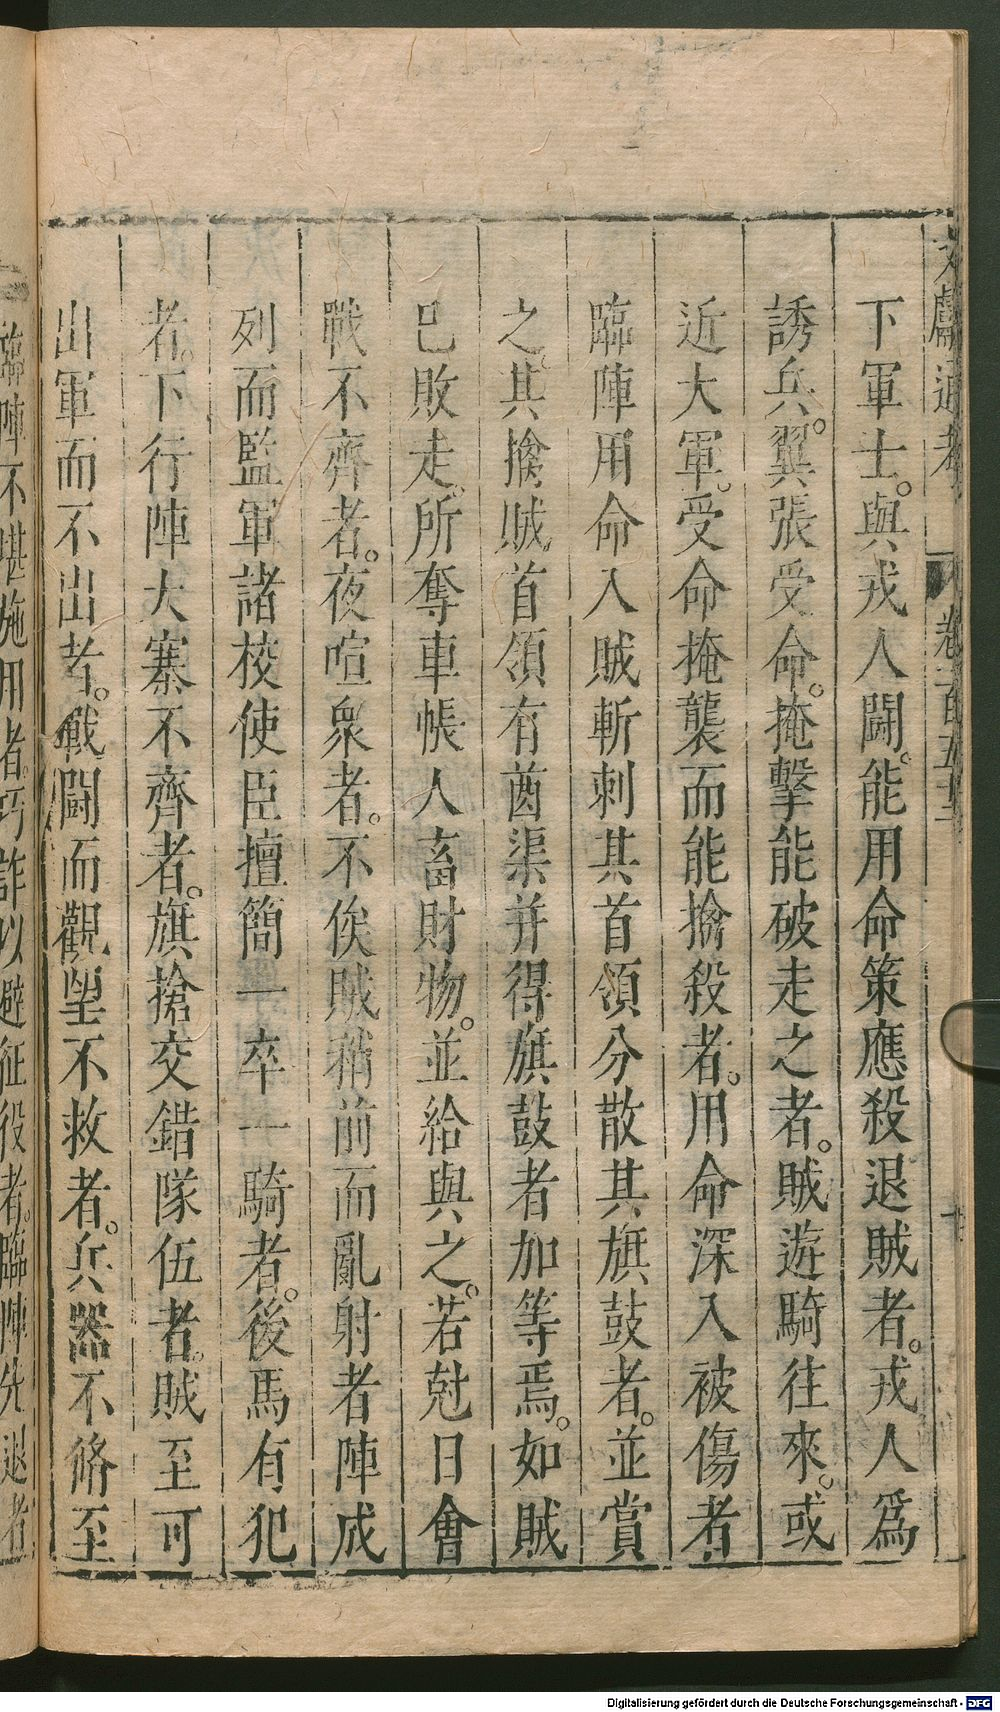 文獻通考 卷一百五十二
下軍士。與戎人鬪。能用命策應殺退賊者。戎人爲
誘兵。翼張受命。掩擊能破走之者。賊遊騎往來。或
近大軍。受命掩襲而能擒殺者。用命深入被傷者
臨陣用命入賊斬刺其首領分散其旗鼓者。並賞
之。其擒賊首領有酋渠并得旗鼓者加等焉。如賊
已敗走。所奪車帳人畜財物。並給與之。若尅日會
戰不齊者。夜喧衆者。不俟賊稍前而亂射者陣成
列而監軍諸校使臣擅簡一卒一騎者。後馬有犯
者。下行陣大寨不齊者。旗搶交錯隊伍者。賊至可
出軍而不出者。戰鬪而觀望不救者。兵器不脩至
臨陣不堪施用者。巧詐以避征役者。臨陣先退者
Digitalisierung gefördert durch die Deutsche Forschungsgemeinschaft - DFG